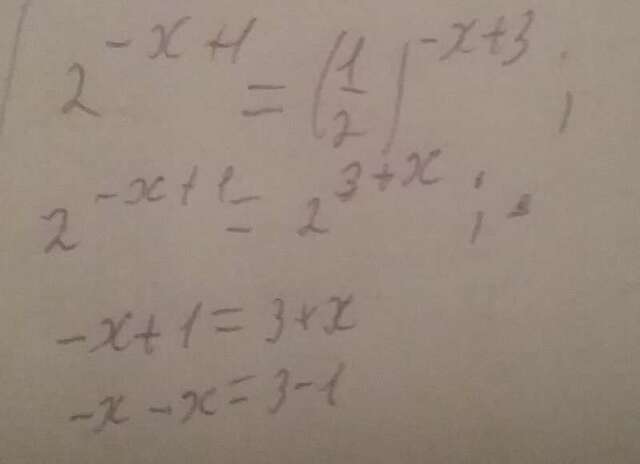 2^{-x+1} = (1/2)^{-x+3};
2^{-x+1} = 2^{3+x};
-x+1=3+x
-x-x=3-1